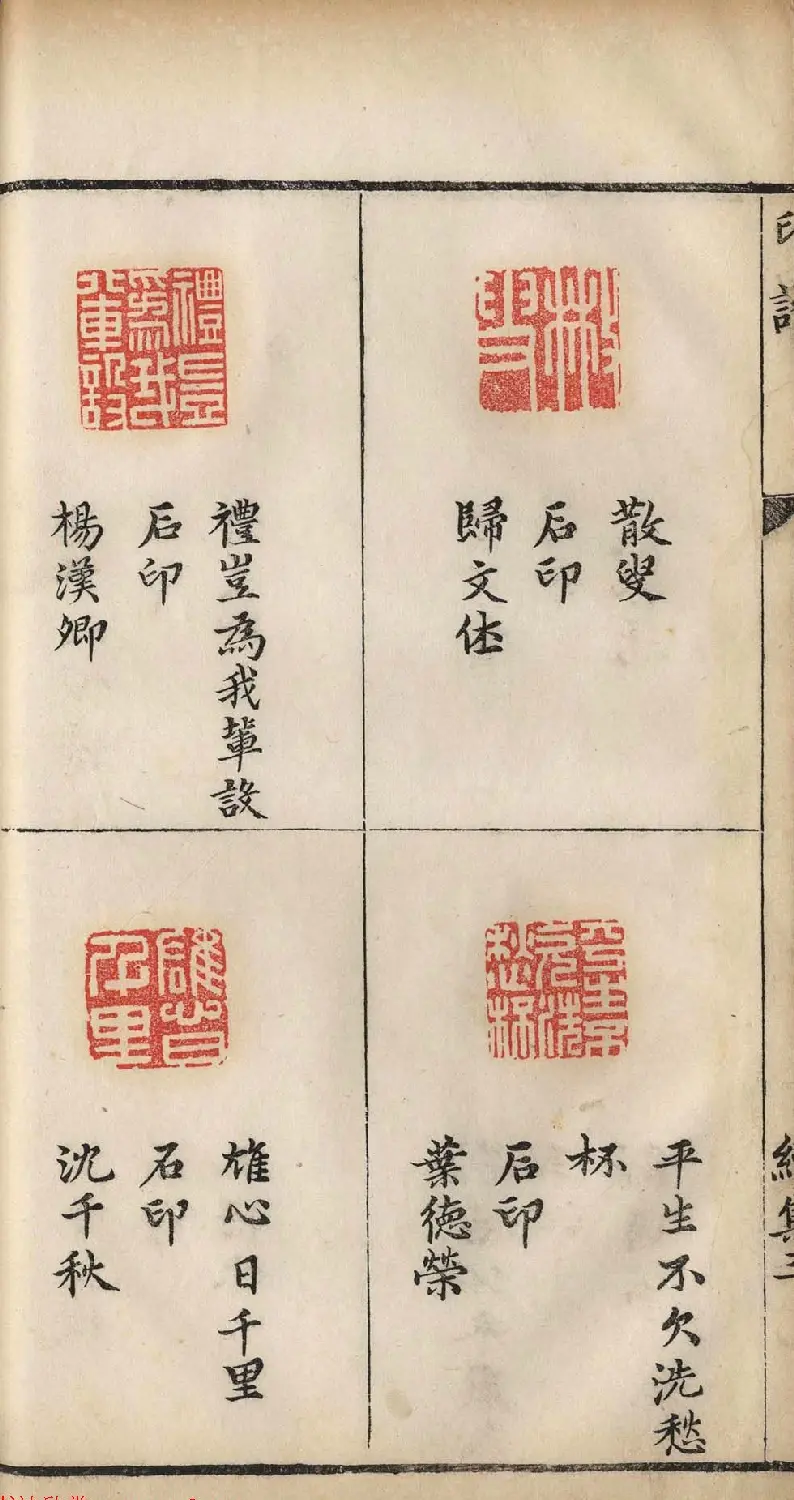 散叟
石印
歸文休
平生不欠洗愁
杯
石印
葉德榮
禮豈為我輩設
石印
楊漢卿
雄心日千里
石印
沈千秋